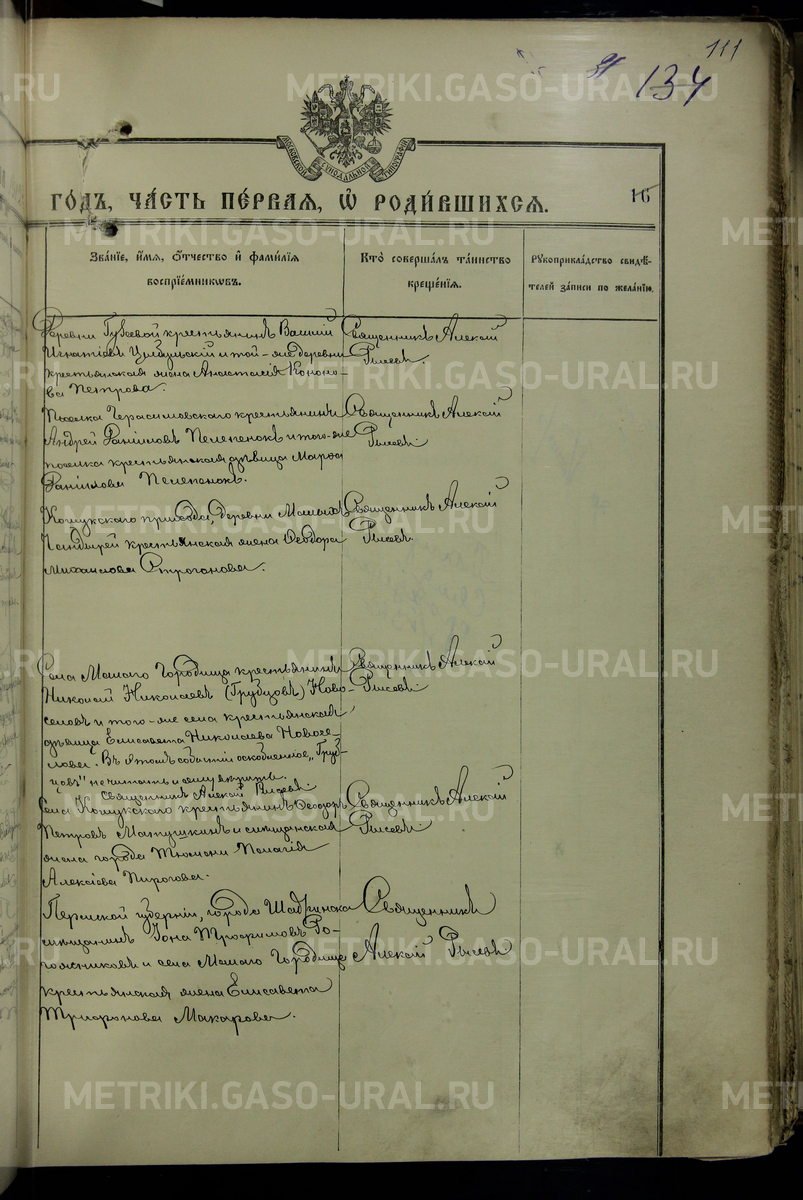 111
134
METRIKI.GASO-URAL.RU
МОСКОВСКОЙ СѴНОДАЛЬНОЙ ТИПОГРАФІИ
ГО́ДЪ, ЧА́СТЬ ПЕ́РВАЯ, Ѡ҆ РОДИ́ВШИХСЯ.
16
Зва́нїе, и҆́мя, ѻ҆́тчество и҆ фами́лїя воспрїе́мникѡвъ.
Кто̀ соверша́лъ та́инство креще́нїя.
Рꙋкоприкла́дство свидѣ́телей за́писи по жела́нїю.
Деревни Гузеевой крестьянинъ Василій
Игнатіевъ и той-же деревни
крестьянская жена Анастасія Кононо-
ва Петрова.
Священникъ Алексій
Рысевъ.
Поселка Герасимовскаго крестьянинъ
Андрей Даніиловъ Пелепенокъ и того-же
поселка крестьянская дѣвица Марѳа
Даніилова Пелепенокъ.
Священникъ Алексій
Рысевъ.
Кошукскаго прихода, деревни Малыхъ
крестьянская жена Ѳеодора
Михаилова Строганова.
Священникъ Алексій
Рысевъ.
Села Малаго Городища крестьянинъ
Николай Николаевъ (Грубцовъ) Ново-
селовъ и того-же села крестьянская
дѣвица Елисавета Николаева Новосе-
лова. Въ этомъ событіи оскобленное „Груб-
цовъ" не читать и сему вѣрить.
Священникъ Алексій Рысевъ.
Священникъ Алексій
Рысевъ.
Села Кошукскаго крестьянинъ Ѳеодоръ
Петровъ Матушкинъ и мѣщанская
жена города Тюмени Пелагія
Алексіева Пирогова.
Священникъ Алексій
Рысевъ.
Пермской губерніи, города Шадринска
мѣщанинъ Іона Трофимовъ Ро-
гожниковъ и села Малаго Городища
крестьянская жена Елисавета
Трифонова Макарова.
Священникъ
Алексій Рысевъ